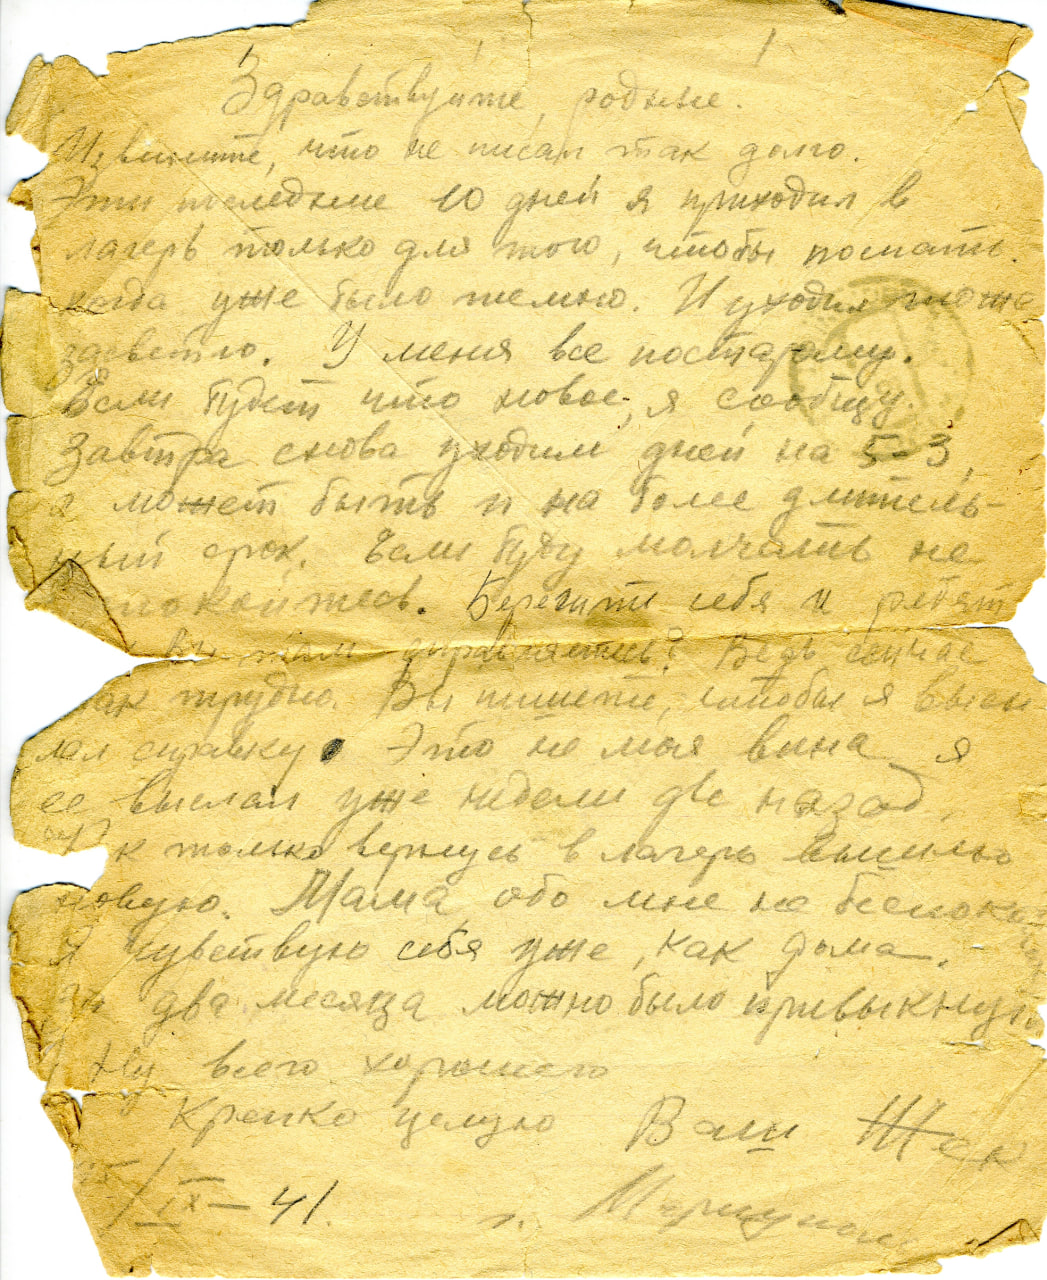 Здравствуйте, родные.
Извините, что не писал так долго.
Эти последние 10 дней я приходил в
лагерь только для того, чтобы поспать
когда уже было темно. И уходил тоже
засветло. У меня все постарому.
Если будет что новое, я сообщу.
Завтра снова уходим дней на 5-3,
а может быть и на более длитель-
ный срок. Если буду молчать не
покойтесь. Берегите себя и ребят
вы там справляетесь? Ведь сейчас
так трудно. Вы пишете, чтобы я высы
лал справку. Это не моя вина я
ее выслал уже недели две назад,
как только вернусь в лагерь вышлю
новую. Мама, обо мне не беспокой
Я чувствую себя уже, как дома.
За два месяца можно было привыкнуть
Ну всего хорошего
Крепко целую Ваш
/IX-41. г.